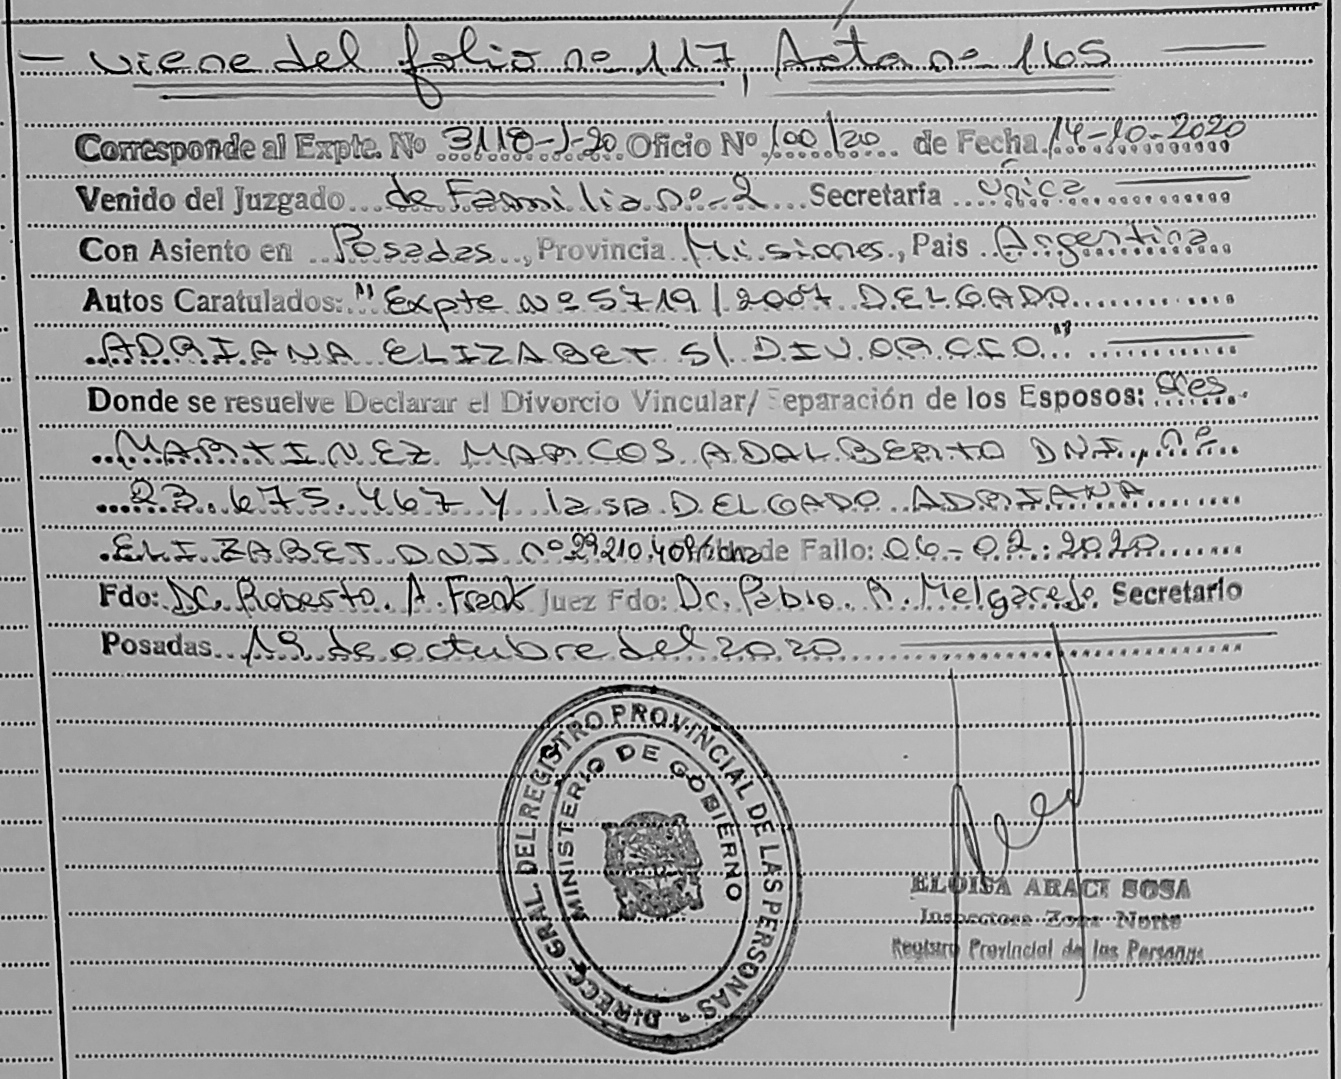 - viene del folio no 117, Acta no 165
Corresponde al Expte. No 3118-J-20 Oficio No 100/20 de Fecha 14-10-2020
Venido del Juzgado de Familia no-2 Secretaría única
Con Asiento en Posadas, Provincia Misiones, Pais Argentina
Autos Caratulados: "Expte No 5719/2007 DELGADO
ADRIANA ELIZABET S/ DIVORCIO"
Donde se resuelve Declarar el Divorcio Vincular/ Separación de los Esposos:
MARTINEZ MARCOS ADALBERTO DNI, no
23.675.467 Y la sra DELGADO ADRIANA
ELIZABET DNI no 29.210.409 de Fallo: 06-02-2020
Fdo: Dr. Roberto. A. Frank Juez Fdo: Dr. Pablo. A. Melgarejo. Secretario
Posadas 19 de octubre del 2020
DIRECC. GRAL. DEL REGISTRO PROVINCIAL DE LAS PERSONAS -
MINISTERIO DE GOBIERNO
ELOISA ARACI SOSA
Inspectora Zona Norte
Registro Provincial de las Personas